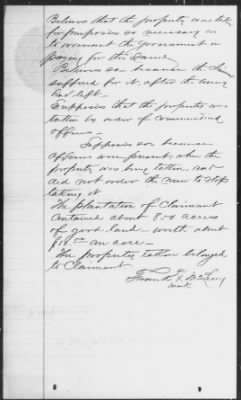 Believes that the property was taken
for purposes so necessary as
to warrant the government in
paying for the same.
Believes so because the
suffered for it after the army
had left.
Supposes that the property was
taken by order of commanding
officer —
Supposes so because
officers were present when the
property was being taken, and
did not order the men to stop
taking it
The plantation of Claimant
contained about 800 acres
of good land — worth about
$10.00 an acre —
The property taken belonged
to Claimant
Frank X
mark